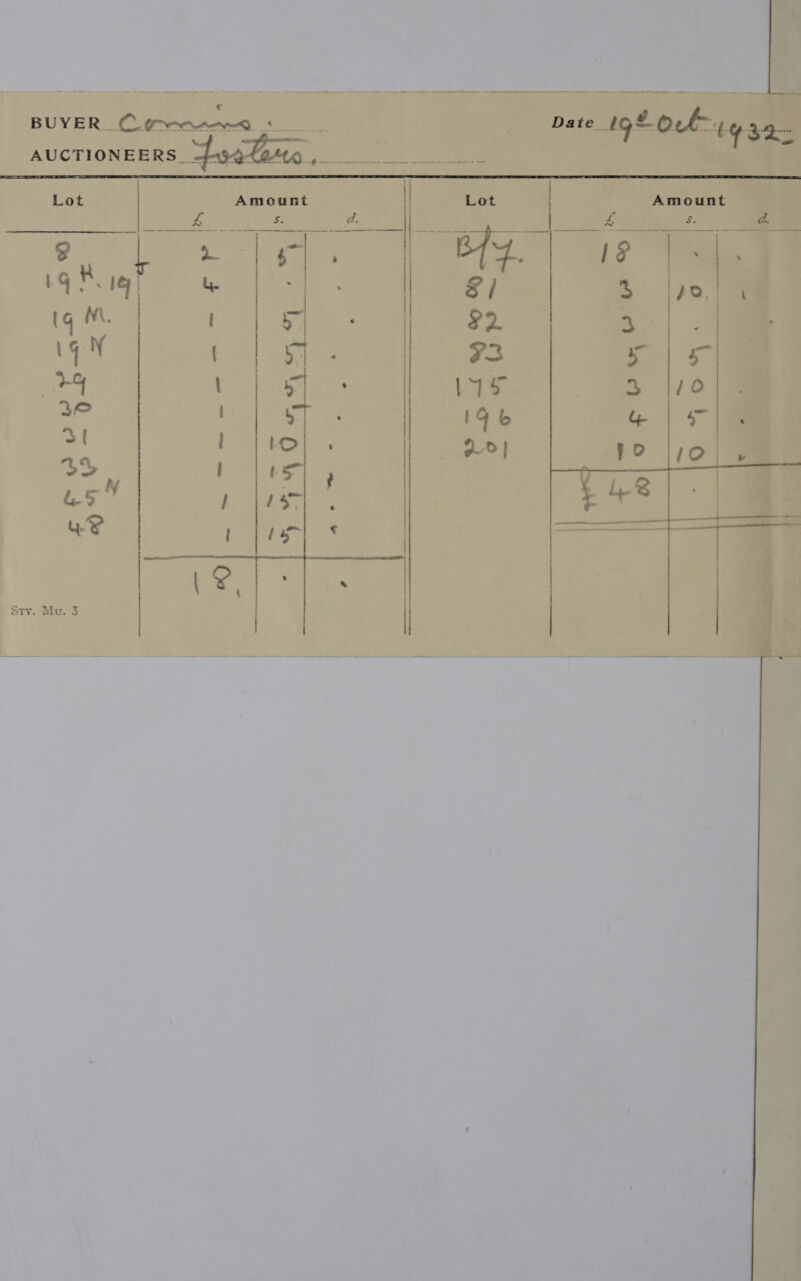 BUYER
Date 19th Oct 1932
AUCTIONEERS Fosters
Lot Amount Lot Amount
£ s. d. £ s. d.
8 2 5 . B/f. 18 . .
19 H. 19 J 4 . . 81 3 10 .
19 M. 1 5 . 82 3 .
19 N 1 5 . 83 5 5
29 1 5 . 175 3 10 .
30 1 5 . 196 4 5 .
31 1 10 . 201 10 10 .
33 1 15 . £ 48 .
45 N 1 15 .
48 1 15 .
18 . .
Sty. Mu. 3